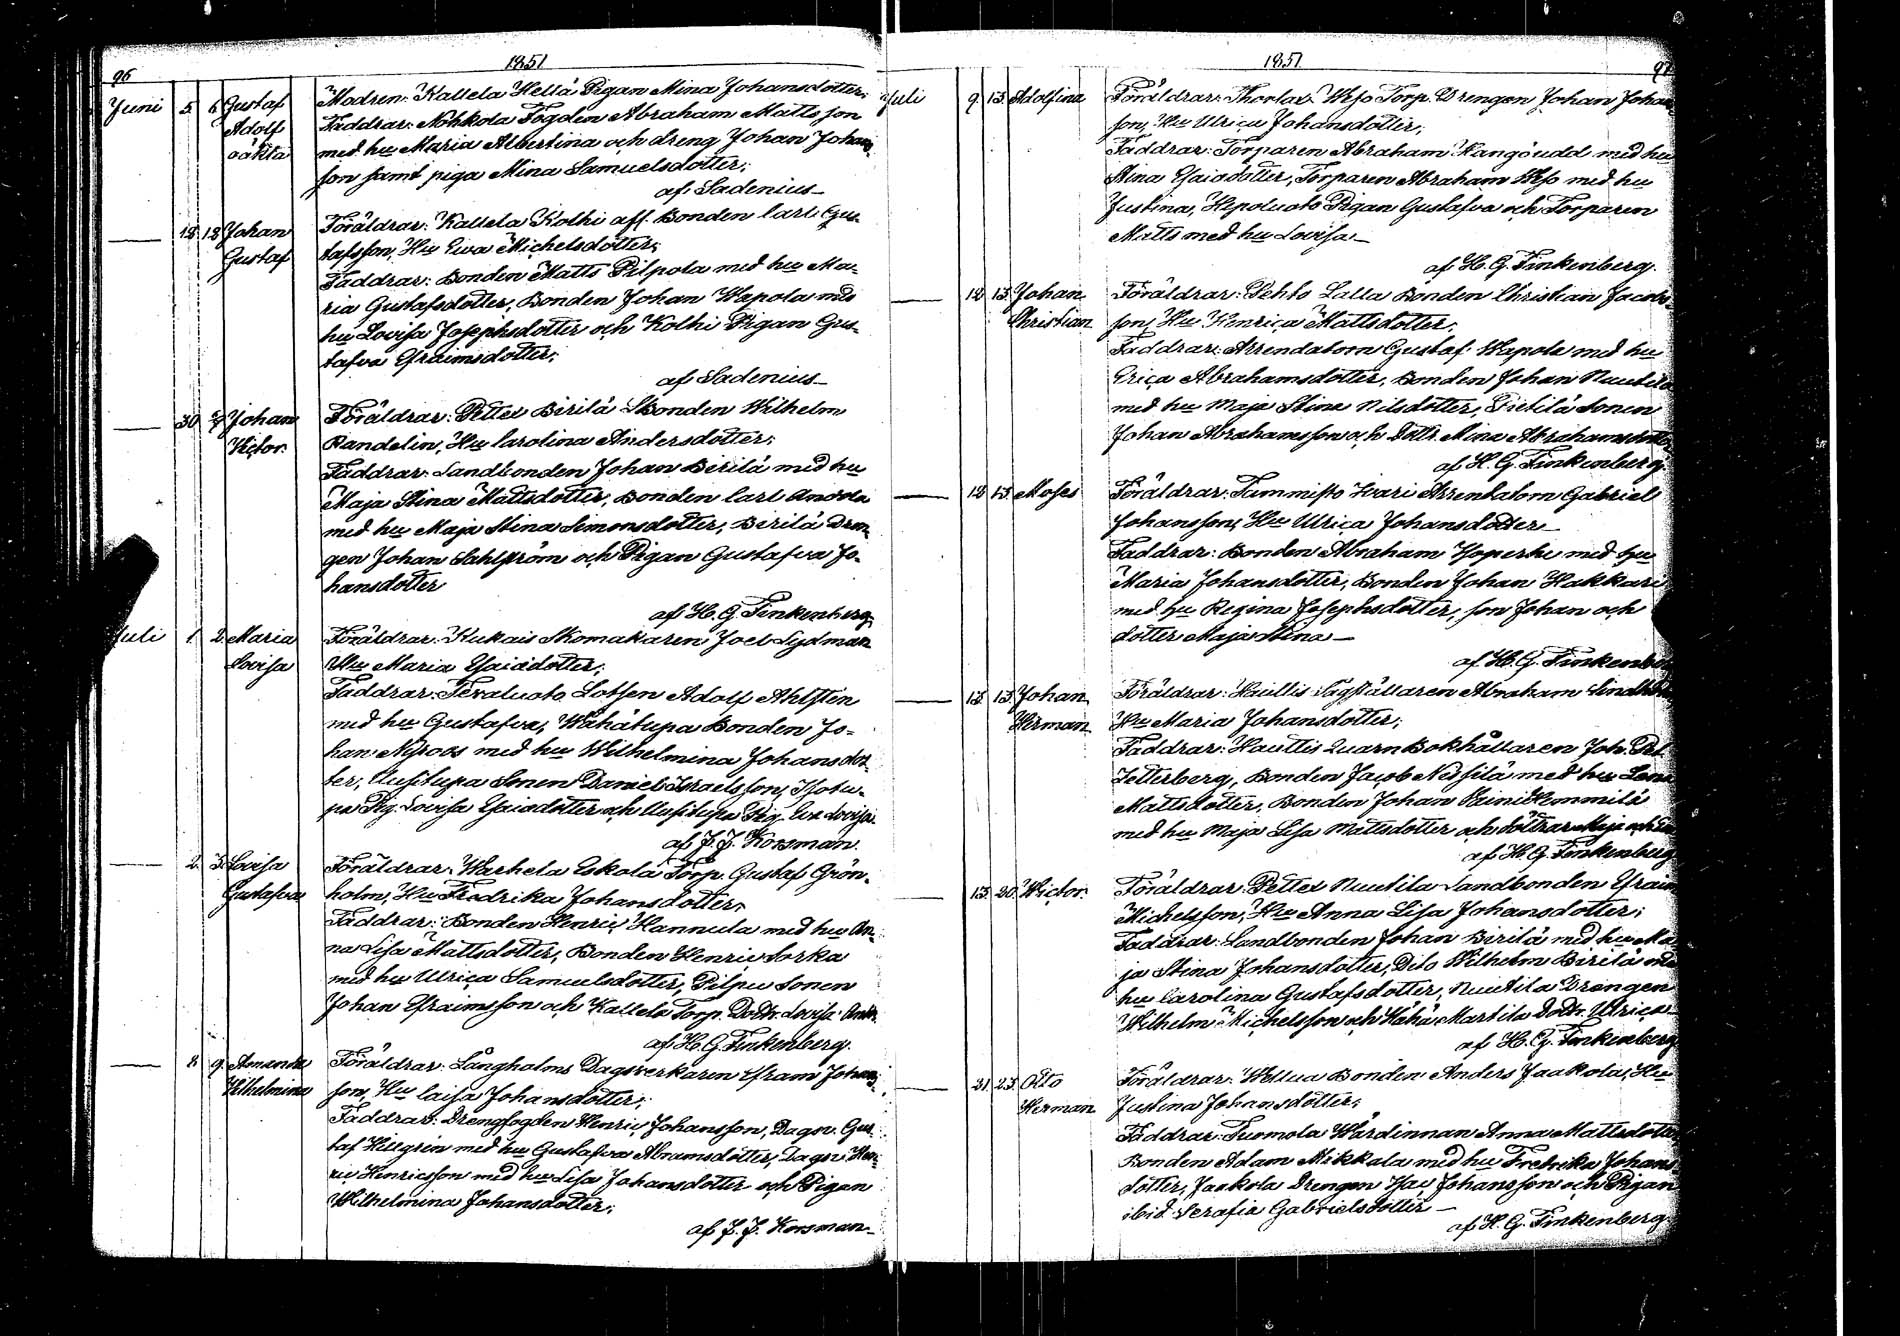 96
1851
Juni 5. 6. Gustaf Modren: Kallela Hellä Pigan Mina Johansdotter;
Adolf Faddrar: Nohkola Fogden Abraham Mattsson
oäkta med hu Maria Albertina och dreng Johan Johans-
son samt piga Mina Samuelsdotter;
af Sadenius
18. 18. Johan Föräldrar: Kallela Kolhi aff. Bonden Carl Gus-
Gustaf tafsson, Hu Eva Michelsdotter;
Faddrar: Bonden Matts Pilpola med hu Ma-
ria Gustafsdotter, Bonden Johan Wapola med
hu Lovisa Josephsdotter och Kolhi Pigan Gus-
tafva Efraimsdotter;
af Sadenius
30. Johan Föräldrar: Petter Birilä Bonden Wilhelm
Victor. Randelin, Hu Carolina Andersdotter;
Faddrar: Landbonden Johan Birilä med hu
Maja Stina Mattsdotter, Bonden Carl Andola
med hu Maja Stina Simonsdotter, Birilä Dren-
gen Johan Sahlström och Pigan Gustafva Jo-
hansdotter
af H. G. Finkenberg
Juli 1. 2. Maria Föräldrar: Kukais Skomakaren Joel Sydman
Lovisa Hu Maria Esaiædotter;
Faddrar: Tervaluoto Lotsen Adolf Ahlsten
med hu Gustafva, Wähätupa Bonden Jo-
han Nyroos med hu Wilhelmina Johansdot-
ter, Uusitupa Sonen Daniel Israelsson, Isotu-
pa Pig. Lovisa Esaiædotter och Uusitupa Pig. Eva Lovisa.
af J. J. Korsman.
2. 3. Lovisa Föräldrar: Warhela Eskola Torp. Gustaf Grön-
Gustafva holm, Hu Fredrika Johansdotter;
Faddrar: Bonden Henric Hannula med hu An-
na Lisa Mattsdotter, Bonden Henric Sorka
med hu Ulrica Samuelsdotter, Pilpu Sonen
Johan Efraimsson och Kallela Torp. Dottr. Lovisa
af H. G. Finkenberg.
8. 9. Amanda Föräldrar: Långholms Dagsverkaren Efram Johans-
Wilhelmina son, Hu Caisa Johansdotter;
Faddrar: Drengfogden Henric Johansson, Dagsv. Gus-
taf Hellgren med hu Gustafva Abramsdotter, Dagsv. Hen-
ric Henricsson med hu Lisa Johansdotter och Pigan
Wilhelmina Johansdotter;
af J. J. Korsman
1851
97
Juli 9. 13. Adolfina Föräldrar: Thorlax Weso Torp. Drengen Johan Johans-
son, Hu Ulrica Johansdotter;
Faddrar: Torparen Abraham Kangöudd med hu
Stina Esaiædotter, Torparen Abraham Weso med hu
Justina, Hepoluoto Pigan Gustafva och Torparen
Matts med hu Lovisa
af H. G. Finkenberg.
12. 13. Johan Föräldrar: Pehto Lalla Bonden Christian Jacobs-
Christian son, Hu Henrica Mattsdotter;
Faddrar: Arrendatorn Gustaf Wapola med hu
Erica Abrahamsdotter, Bonden Johan Nuutila
med hu Maja Stina Nilsdotter, Pietilä Sonen
Johan Abrahamsson och Dottr. Mina Abrahamsdotter
af H. G. Finkenberg.
12. 13. Moses Föräldrar: Tammisto Ivari Arrentatorn Gabriel
Johansson, Hu Ulrica Johansdotter
Faddrar: Bonden Abraham med hu
Maria Johansdotter, Bonden Johan Hakkari
med hu Regina Josephsdotter, son Johan och
dotter Maja Stina
af H. G. Finkenberg
13. 13. Johan Föräldrar: Haittis Sågställaren Abraham
Herman Hu Maria Johansdotter;
Faddrar: Hauttis Quarn Bokhållaren Joh. Pet.
Zetterberg, Bonden Jacob Nissilä med hu Lena
Mattsdotter, Bonden Johan Heinikkommilä
med hu Maja Lisa Mattsdotter och döttrar Maja och
af H. G. Finkenberg
13. 20. Wictor. Föräldrar: Petter Nuutila Landbonden Efraim
Michelsson, Hu Anna Lisa Johansdotter;
Faddrar: Landbonden Johan Birilä med hu Ma-
ja Stina Johansdotter, Dito Wilhelm Birilä med
hu Carolina Gustafsdotter, Nuutila Drängen
Wilhelm Michelsson och Wähä Martila Dottr. Ulrica
af H. G. Finkenberg
21. 23. Otto Föräldrar: Wellua Bonden Anders Jaakola, Hu
Herman Justina Johansdotter;
Faddrar: Tuomola Wärdinnan Anna Mattsdotter
Bonden Adam Mikkola med hu Fredrika Johans-
dotter, Jaakola Drengen Isac Johansson och Pigan
ibid Serafia Gabrielsdotter
af H. G. Finkenberg